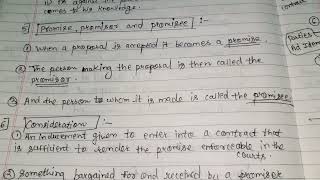 or against the p
comes to his knowledge.
5] [Promise, promisor and promisee] :-
① When a proposal is accepted it becomes a promise.
② The person making the proposal is then called the
promisor.
③ And the person to whom it is made is called the promisee.
6] [Consideration] :-
① An inducement given to enter into a contract that
is sufficient to render the promise enforceable in the
courts.
② something bargained for and received by a promisor
C
contract
Parties
Ad Idem